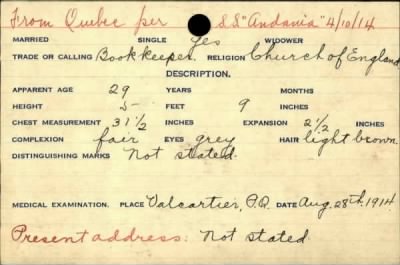 From Quebec per S.S "Andania" 4/10/14
MARRIED SINGLE Yes WIDOWER
TRADE OR CALLING Bookkeeper. RELIGION Church of England
DESCRIPTION.
APPARENT AGE 29 YEARS MONTHS
HEIGHT 5 FEET 9 INCHES
CHEST MEASUREMENT 31 1/2 INCHES EXPANSION 2 1/2 INCHES
COMPLEXION fair EYES grey HAIR light brown.
DISTINGUISHING MARKS Not stated.
MEDICAL EXAMINATION. PLACE Valcartier, P.Q. DATE Aug. 28th. 1914
Present address: Not stated